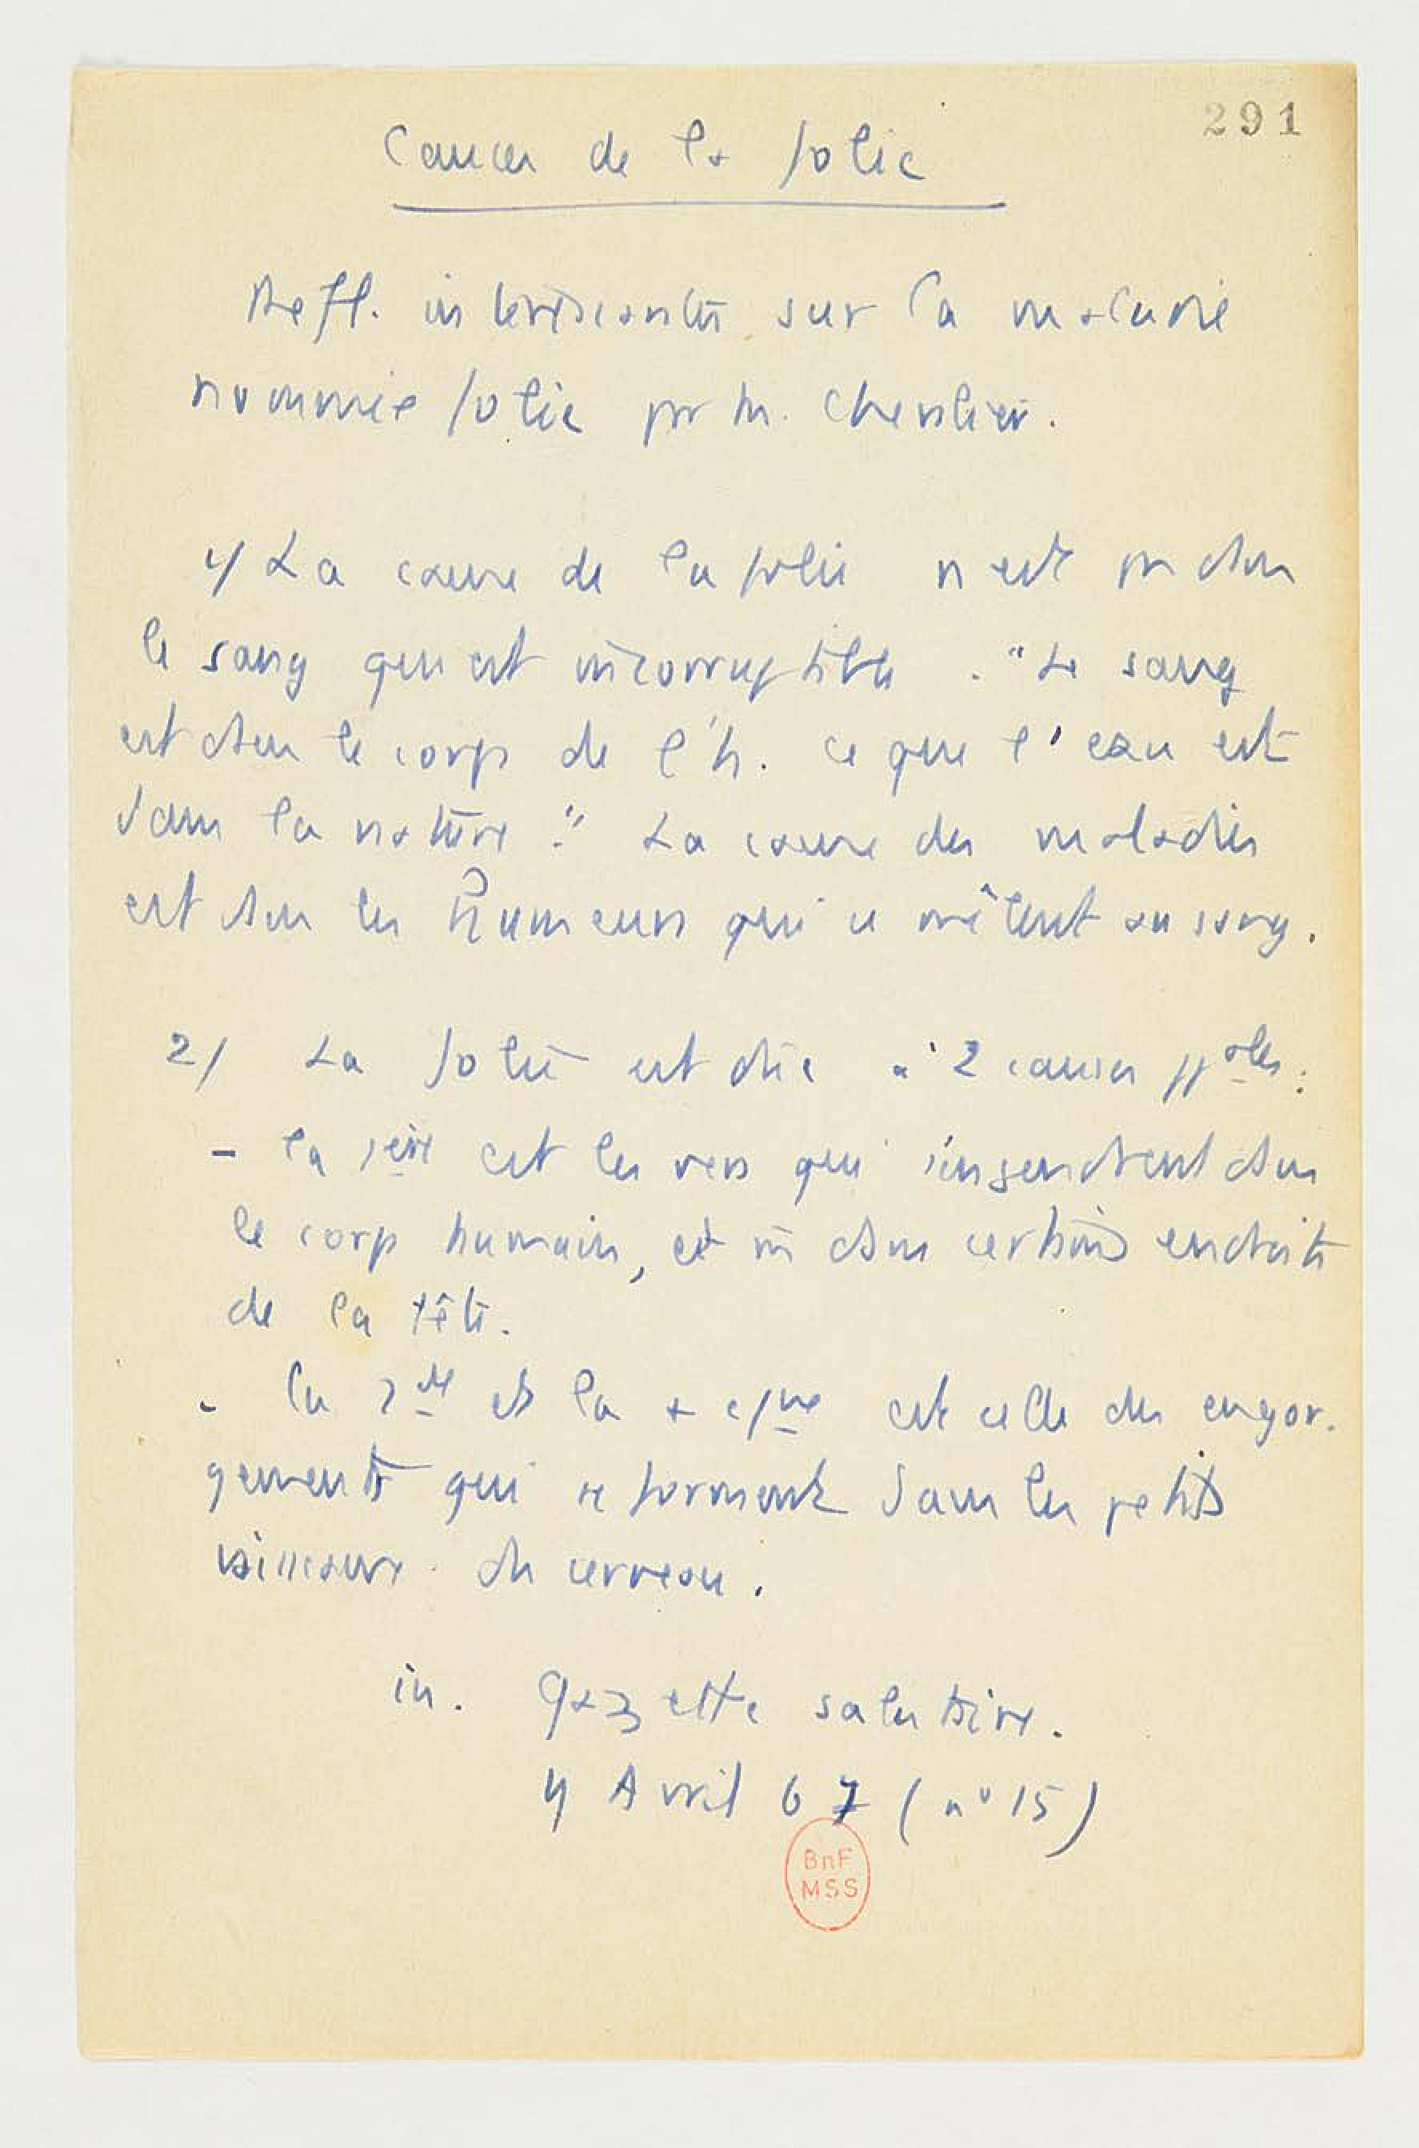 291
Causes de la folie
Refl. intéressantes sur la maladie
nommée folie par M. Chevalier.
1/ La cause de la folie n'est pas dans
le sang qui est incorruptible. "Le sang
est dans le corps de l'h. ce que l'eau est
dans la nature." La cause des maladies
est dans les humeurs qui se mêlent au sang.
2/ La folie est due à 2 causes ppales :
- la 1ère est les vers qui s'engendrent dans
le corps humain, et m dans certains endroits
de la tête.
- la 2de et la + fque est celle des engor-
gements qui se forment dans les petits
vaisseaux du cerveau.
in. Gazette salutaire.
Avril 67 (n° 15)
BnF
MSS